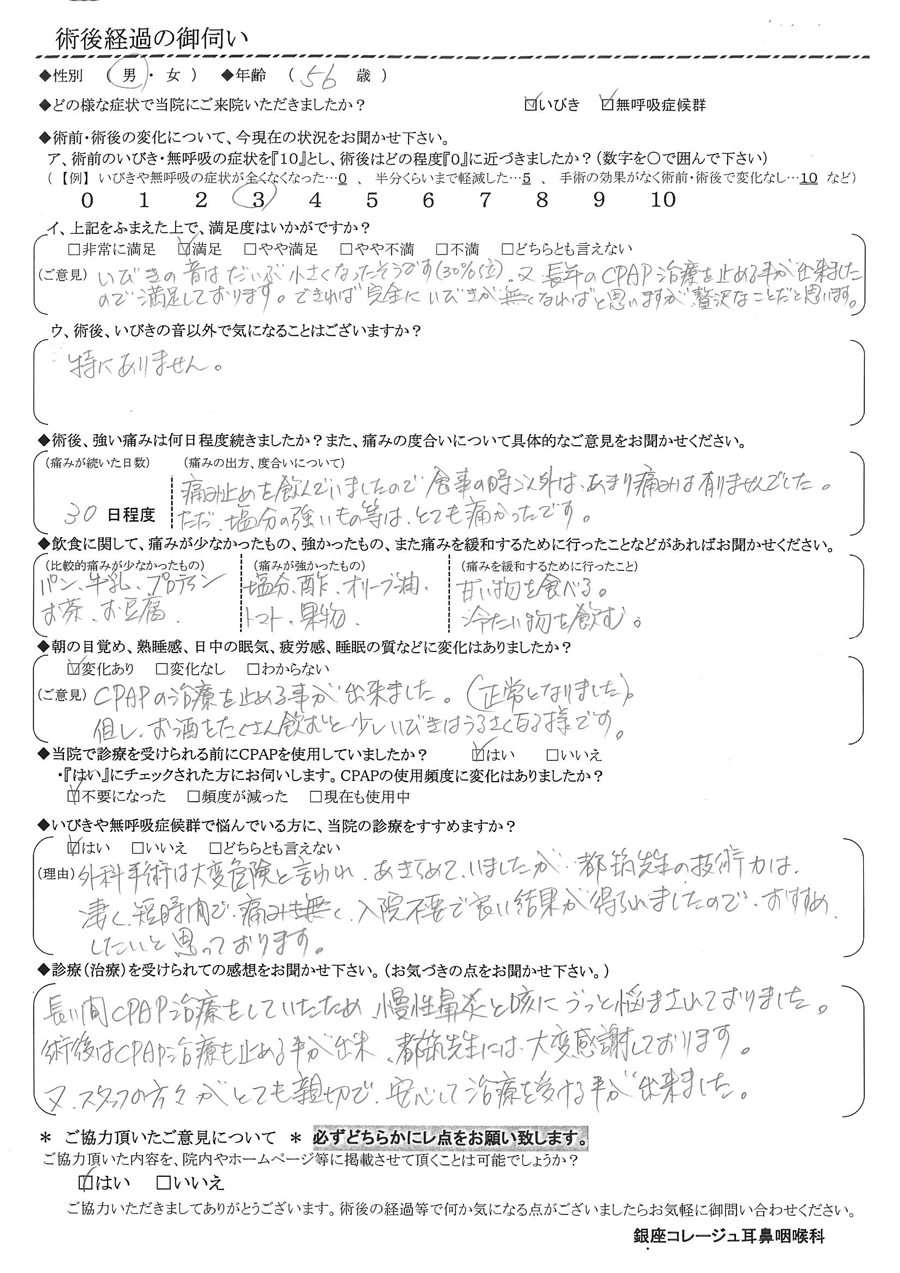 術後経過の御伺い
◆性別 ( 男 ・ 女 ) ◆年齢 ( 56 歳 )
◆どの様な症状で当院にご来院いただきましたか? ☑いびき ☑無呼吸症候群
◆術前・術後の変化について、今現在の状況をお聞かせ下さい。
ア、術前のいびき・無呼吸の症状を『10』とし、術後はどの程度『0』に近づきましたか?(数字を〇で囲んで下さい)
( 【例】 いびきや無呼吸の症状が全くなくなった…0 、 半分くらいまで軽減した…5 、 手術の効果がなく術前・術後で変化なし…10 など)
0 1 2 3 4 5 6 7 8 9 10
イ、上記をふまえた上で、満足度はいかがですか?
□非常に満足 ☑満足 □やや満足 □やや不満 □不満 □どちらとも言えない
(ご意見) いびきの音はだいぶ小さくなったそうです(30%位)。又長年のCPAP治療を止める事が出来ました
ので満足しております。できれば完全にいびきが無くなればと思いますが贅沢なことだと思います。
ウ、術後、いびきの音以外で気になることはございますか?
特にありません。
◆術後、強い痛みは何日程度続きましたか?また、痛みの度合いについて具体的なご意見をお聞かせください。
(痛みが続いた日数) (痛みの出方、度合いについて)
痛み止めを飲んでいましたので食事の時以外は、あまり痛みは有りませんでした。
30 日程度 ただ、塩分の強いもの等は、とても痛かったです。
◆飲食に関して、痛みが少なかったもの、強かったもの、また痛みを緩和するために行ったことなどがあればお聞かせください。
(比較的痛みが少なかったもの) (痛みが強かったもの) (痛みを緩和するために行ったこと)
パン、牛乳、プロテイン 塩分、酢、オリーブ油、 甘い物を食べる。
お茶、お豆腐、 トマト、果物、 冷たい物を飲む。
◆朝の目覚め、熟睡感、日中の眠気、疲労感、睡眠の質などに変化はありましたか?
☑変化あり □変化なし □わからない
(ご意見) CPAPの治療を止める事が出来ました。(正常となりました)。
但し、お酒をたくさん飲むと少しいびきはうるさくなる様です。
◆当院で診療を受けられる前にCPAPを使用していましたか? ☑はい □いいえ
・『はい』にチェックされた方にお伺いします。CPAPの使用頻度に変化はありましたか?
☑不要になった □頻度が減った □現在も使用中
◆いびきや無呼吸症候群で悩んでいる方に、当院の診療をすすめますか?
☑はい □いいえ □どちらとも言えない
(理由) 外科手術は大変危険と言われ、あきらめていましたが、都筑先生の技術力は、
凄く、短時間で、痛みも無く、入院不要で良い結果が得られましたので、おすすめ
したいと思っております。
◆診療(治療)を受けられての感想をお聞かせ下さい。(お気づきの点をお聞かせ下さい。)
長い間CPAP治療をしていたため、慢性鼻炎と咳にずっと悩まされておりました。
術後はCPAP治療も止める事が出来、都筑先生には、大変感謝しております。
又、スタッフの方々がとても親切で、安心して治療を受ける事が出来ました。
＊ ご協力頂いたご意見について ＊ 必ずどちらかにレ点をお願い致します。
ご協力頂いた内容を、院内やホームページ等に掲載させて頂くことは可能でしょうか?
☑はい □いいえ
ご協力いただきましてありがとうございます。術後の経過等で何か気になる点がございましたらお気軽に御問い合わせください。
銀座コレージュ耳鼻咽喉科